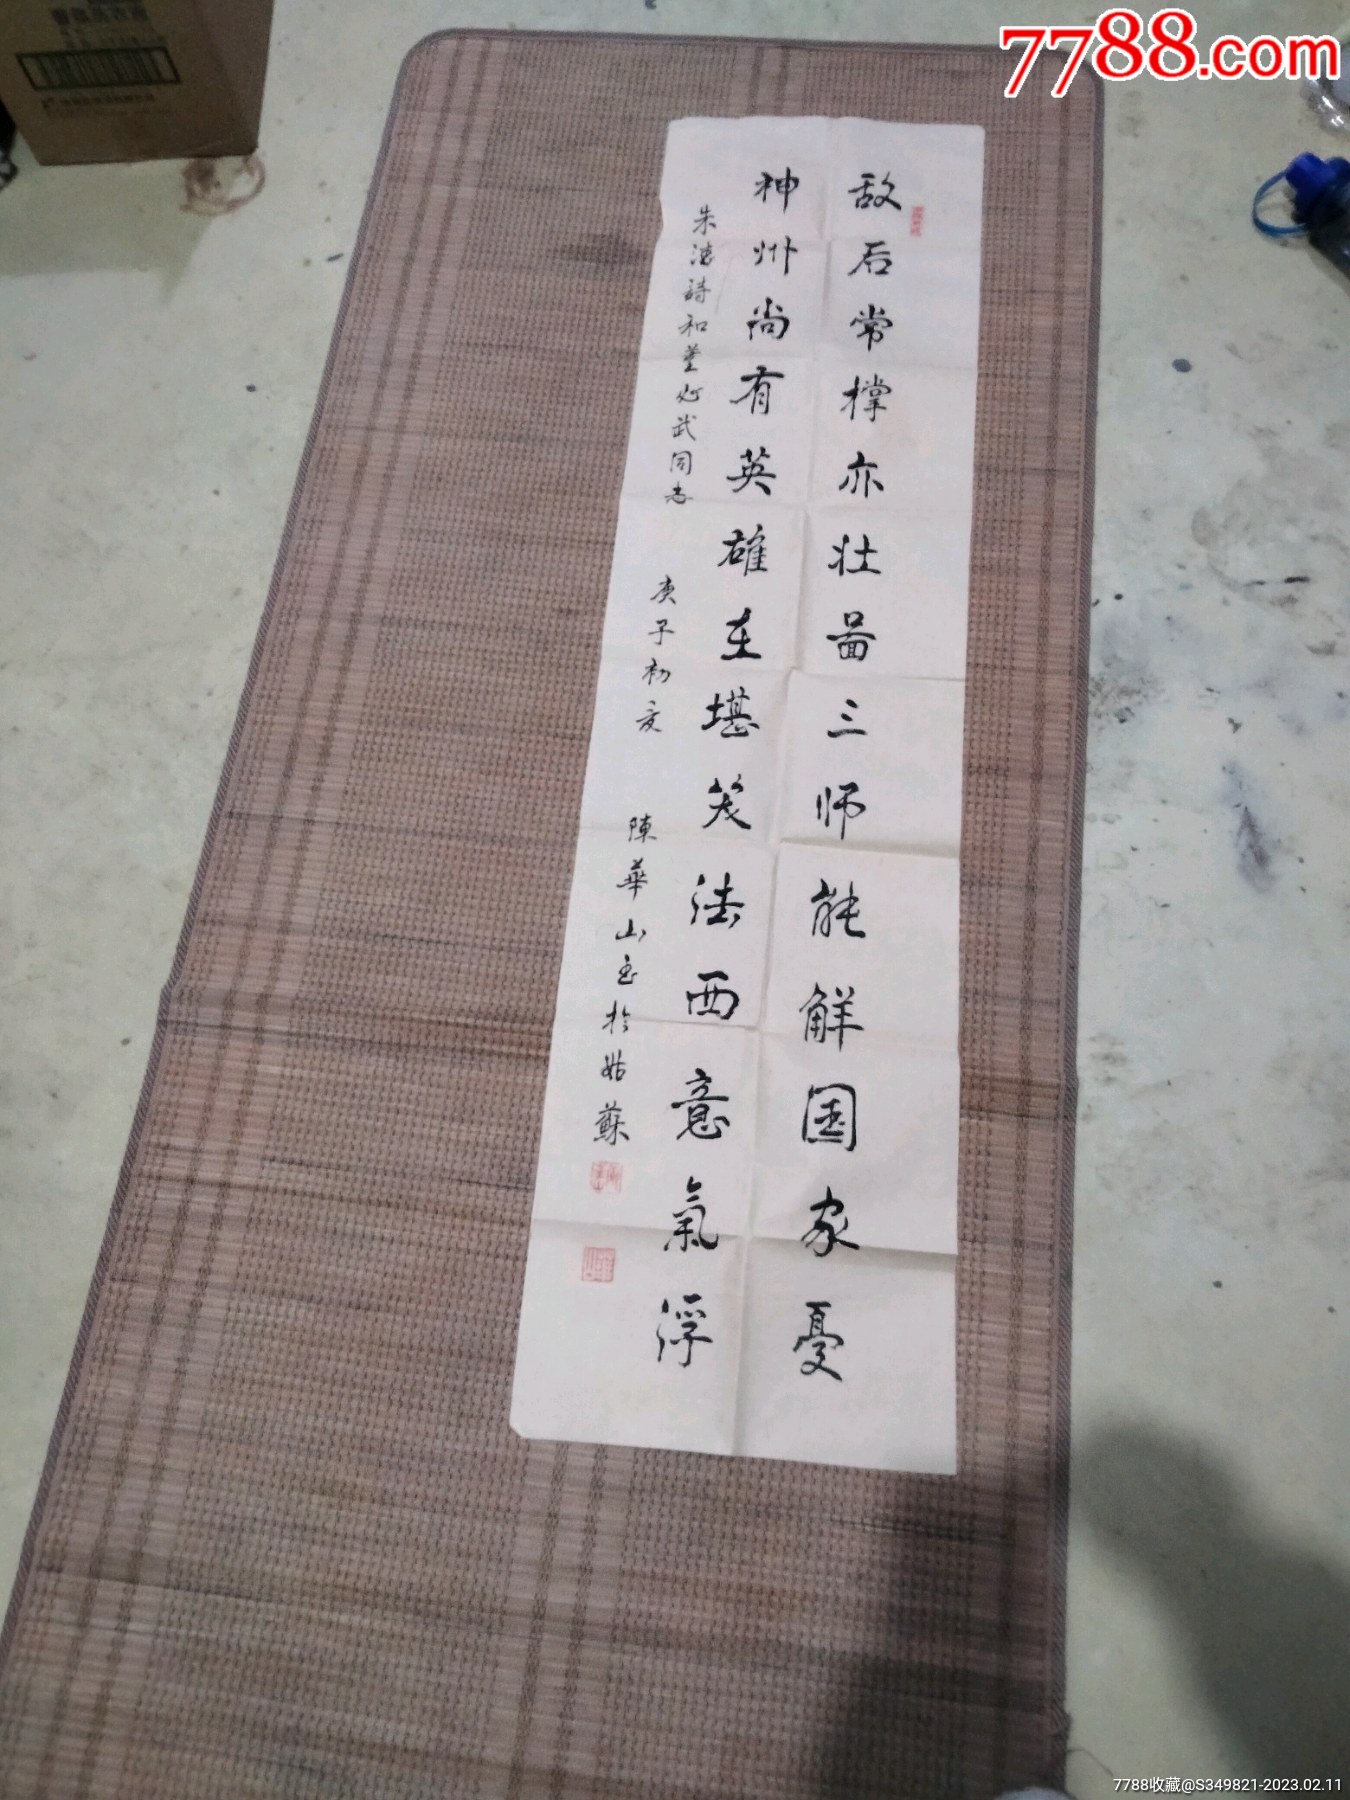 7788.com
敌后常撑亦壮啚三师能解国家憂
神州尚有英雄在堪笑法西意氣浮
朱德詩和董必武同志
庚子初夏
陳華山書於姑蘇
7788收藏@S349821-2023.02.11